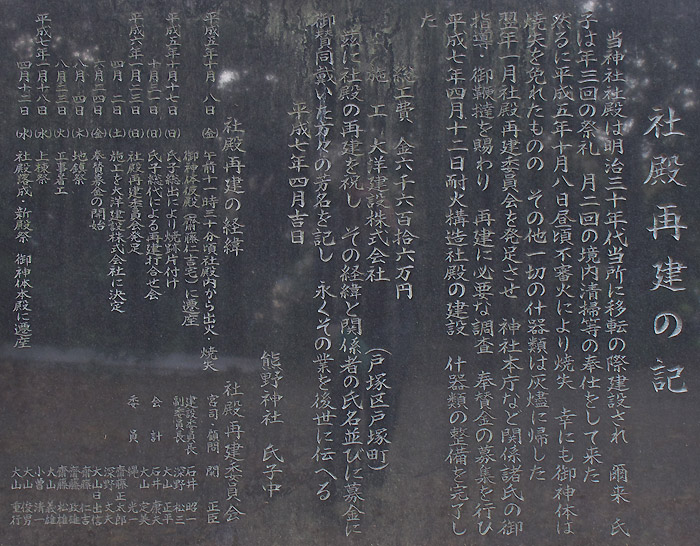 社殿再建の記
当神社社殿は明治三十年代当所に移転の際建設され 爾来 氏
子は年三回の祭礼 月二回の境内清掃等の奉仕をして来た
然るに平成五年十月八日昼頃不審火により焼失 幸にも御神体は
焼失を免れたものの その他一切の什器類は灰燼に帰した
翌年一月社殿再建委員会を発足させ 神社本庁など関係諸氏の御
指導・御鞭撻を賜わり 再建に必要な調査 奉賛金の募集を行ひ
平成七年四月十二日耐火構造社殿の建設 什器類の整備を完了し
た
総工費 金六千六百拾六万円
施工 大洋建設株式会社 (戸塚区戸塚町)
茲に社殿の再建を祝し その経緯と関係者の氏名並びに募金に
御賛同戴いた方々の芳名を記し 永くその業を後世に伝へる
平成七年四月吉日
熊野神社 氏子中
社殿再建の経緯
平成五年十月 八日 (金) 午前十一時三十分頃社殿内から出火・焼失
御神体仮殿(齋藤仁吉宅)に遷座
平成五年十月十七日 (日) 氏子総出により焼跡片付け
十月三一日 (日) 氏子総代による再建打合せ会
平成六年一月二三日 (日) 社殿再建委員会発足
四月 二日 (土) 施工を大洋建設株式会社に決定
六月二四日 (金) 奉賛募金の開始
八月 四日 (木) 地鎮祭
八月二三日 (火) 工事着工
平成七年一月十八日 (水) 上棟祭
四月十二日 (水) 社殿落成・新殿祭 御神体本殿に遷座
社殿再建委員会
宮司・顧問 間 正臣
建設委員長 石井 昭一
副委員長 深野 松三
大山 正平
会計 石井 康夫
大山 定美
委員 縄 光一
齋藤正太郎
深野 文夫
大山日出信
齋藤 仁吉
齋藤 政雄
齋藤 松雄
大山 義雄
小曽 清一
大山 俊男
大山 重行